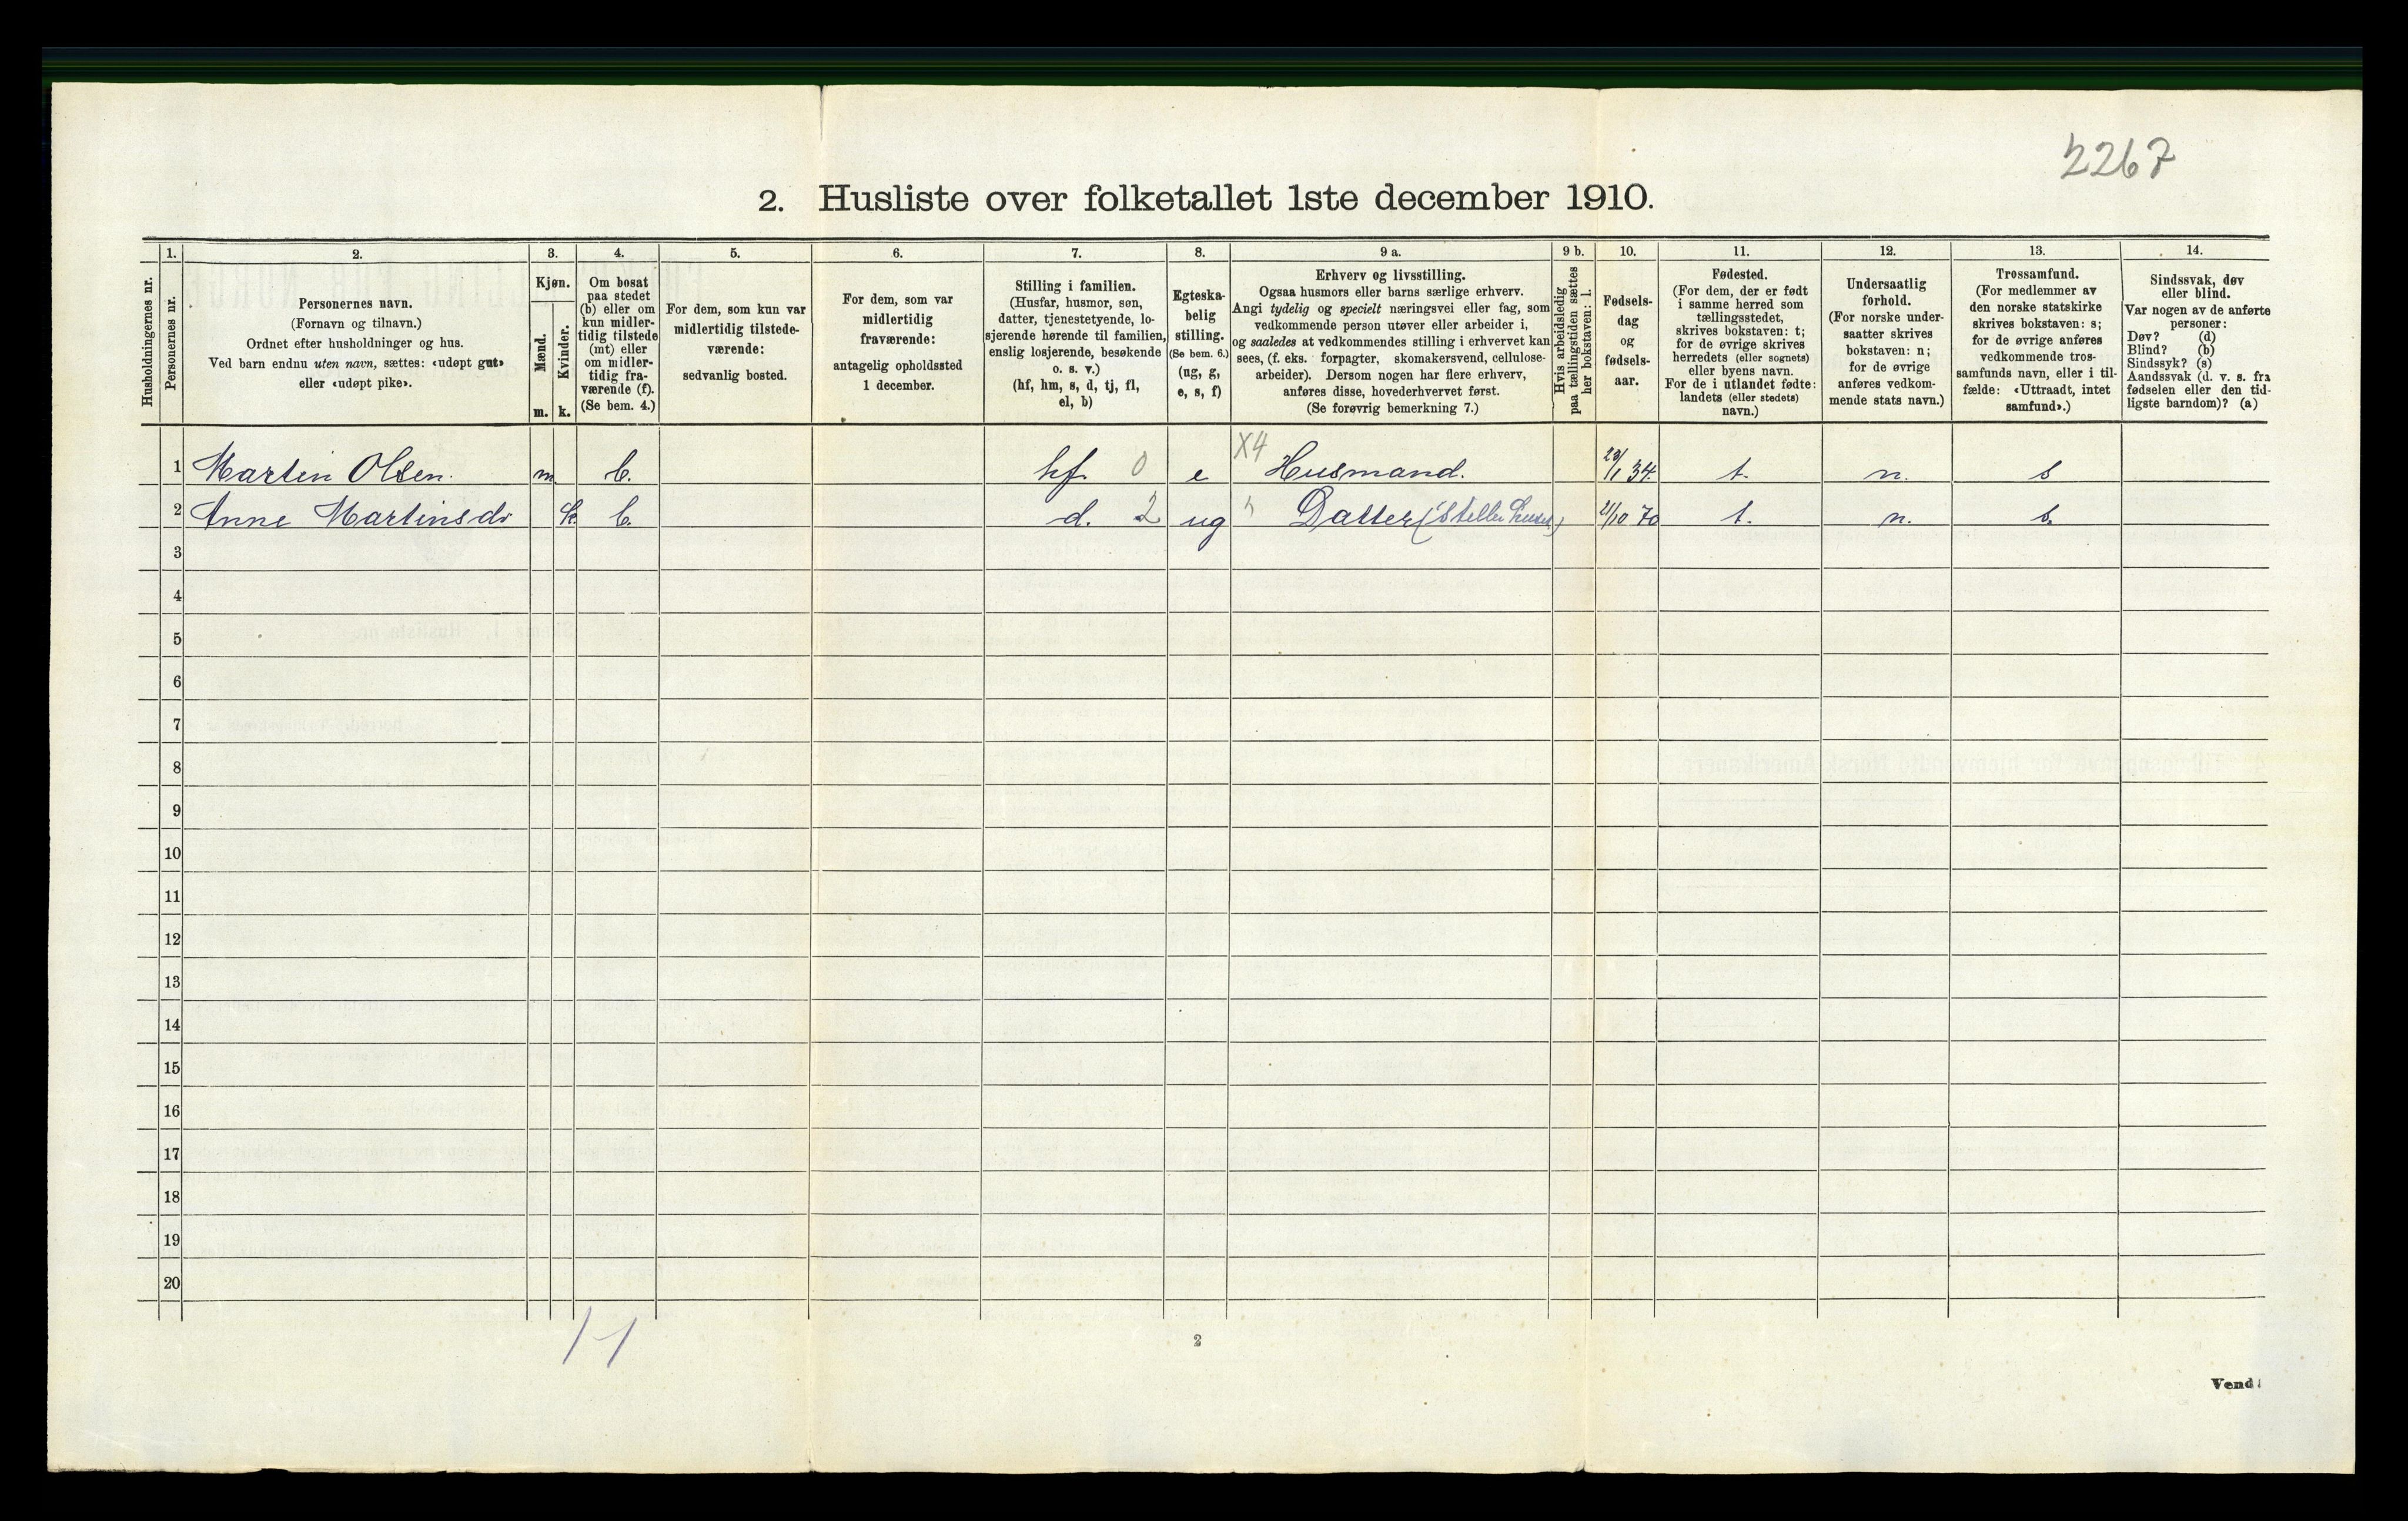 2267
2. Husliste over folketallet 1ste december 1910.
Husholdningernes nr.
1.
Personernes nr.
2.
Personernes navn.
(Fornavn og tilnavn.)
Ordnet efter husholdninger og hus.
Ved barn endnu uten navn, sættes: «udøpt gut»
eller «udøpt pike».
3.
Kjøn.
Mænd.
m.
Kvinder.
k.
4.
Om bosat
paa stedet
(b) eller om
kun midler-
tidig tilstede
(mt) eller
om midler-
tidig fra-
værende (f).
(Se bem. 4.)
5.
For dem, som kun var
midlertidig tilstede-
værende:
sedvanlig bosted.
6.
For dem, som var
midlertidig
fraværende:
antagelig opholdssted
1 december.
7.
Stilling i familien.
(Husfar, husmor, søn,
datter, tjenestetyende, lo-
sjerende hørende til familien,
enslig losjerende, besøkende
o. s. v.)
(hf, hm, s, d, tj, fl,
el, b)
8.
Egteska-
belig
stilling.
(Se bem. 6.)
(ug, g,
e, s, f)
9 a.
Erhverv og livsstilling.
Ogsaa husmors eller barns særlige erhverv.
Angi tydelig og specielt næringsvei eller fag, som
vedkommende person utøver eller arbeider i,
og saaledes at vedkommendes stilling i erhvervet kan
sees, (f. eks. forpagter, skomakersvend, cellulose-
arbeider). Dersom nogen har flere erhverv,
anføres disse, hovederhvervet først.
(Se forøvrig bemerkning 7.)
9 b.
Hvis arbeidsledig
paa tællingstiden sættes
her bokstaven: l.
10.
Fødsels-
dag
og
fødsels-
aar.
11.
Fødested.
(For dem, der er født
i samme herred som
tællingsstedet,
skrives bokstaven: t;
for de øvrige skrives
herredets (eller sognets)
eller byens navn.
For de i utlandet fødte:
landets (eller stedets)
navn.)
12.
Undersaatlig
forhold.
(For norske under-
saatter skrives
bokstaven: n;
for de øvrige
anføres vedkom-
mende stats navn.)
13.
Trossamfund.
(For medlemmer av
den norske statskirke
skrives bokstaven: s;
for de øvrige anføres
vedkommende tros-
samfunds navn, eller i til-
fælde: «Uttraadt, intet
samfund».)
14.
Sindssvak, døv
eller blind.
Var nogen av de anførte
personer:
Døv? (d)
Blind? (b)
Sindssyk? (s)
Aandssvak (d. v. s. fra
fødselen eller den tid-
ligste barndom)? (a)
1 Martin Olsen. m b. hf. 0 e X4 Husmand. 23/1 34. t. n. s
2 Anne Martinsdr k b. d. 2 ug Datter (Steller huset) 21/10 70 t. n. s.
3
4
5
6
7
8
9
10
11
12
13
14
15
16
17
18
19
20
1-1
2
Vend!